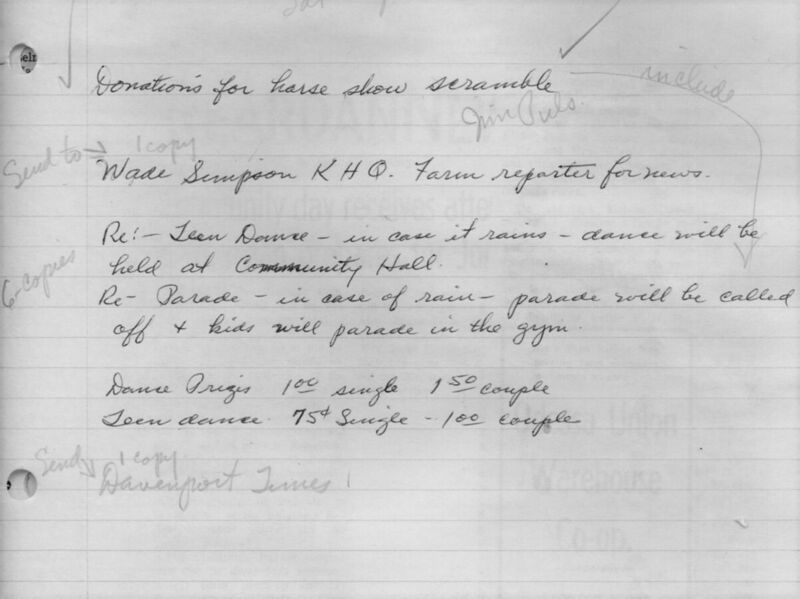 Donations for horse show scramble
include
Jim Puls.
Send to 1 copy
Wade Simpson K H Q. Farm reporter for news.
Re:- Teen Dance - in case it rains - dance will be
held at Community Hall.
6-copies
Re- Parade - in case of rain - parade will be called
off + kids will parade in the gym.
Dance Prizis 1 00 single 1 50 couple
Teen dance 75¢ Single - 1 00 couple
Send 1 copy
Davenport Times
Union
Warehouse
Co-op.